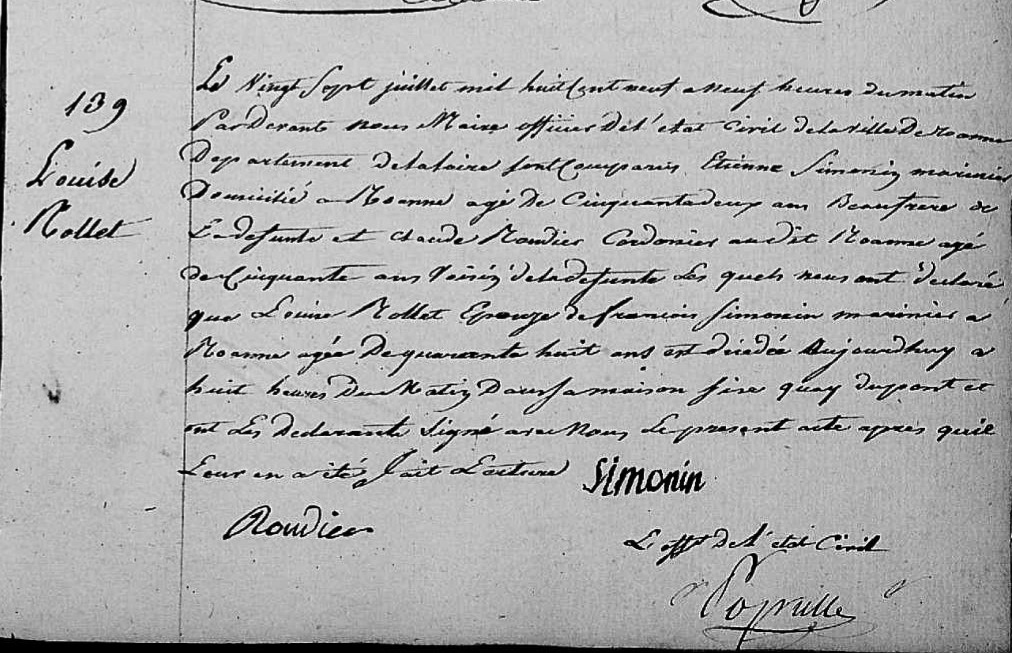 139
Louise
Rollet
Le Vingt Sept juillet mil huit Cent neuf a neuf heures du matin
Pardevant nous Maire officier De l'etat Civil de la ville De roanne
Departement de la loire sont Comparus Etienne Simonin marinier
Domicilié a Roanne agé De Cinquante deux ans Beaufrere de
La defunte et claude Roudier Cordonier au dit Roanne agé
de Cinquante ans Voisin de la defunte Les quels nous ont declaré
que Louise Rollet Epouze de francois Simonin marinier a
Roanne agée De quarante huit ans est décédée Aujourdhuy a
huit heures Du Matin Dans sa maison size quay du pont et
ont Les Declarants Signé avec Nous Le present acte apres qu'il
Leur en a été fait Lecture
Simonin
Roudier
L'offr De l'etat Civil